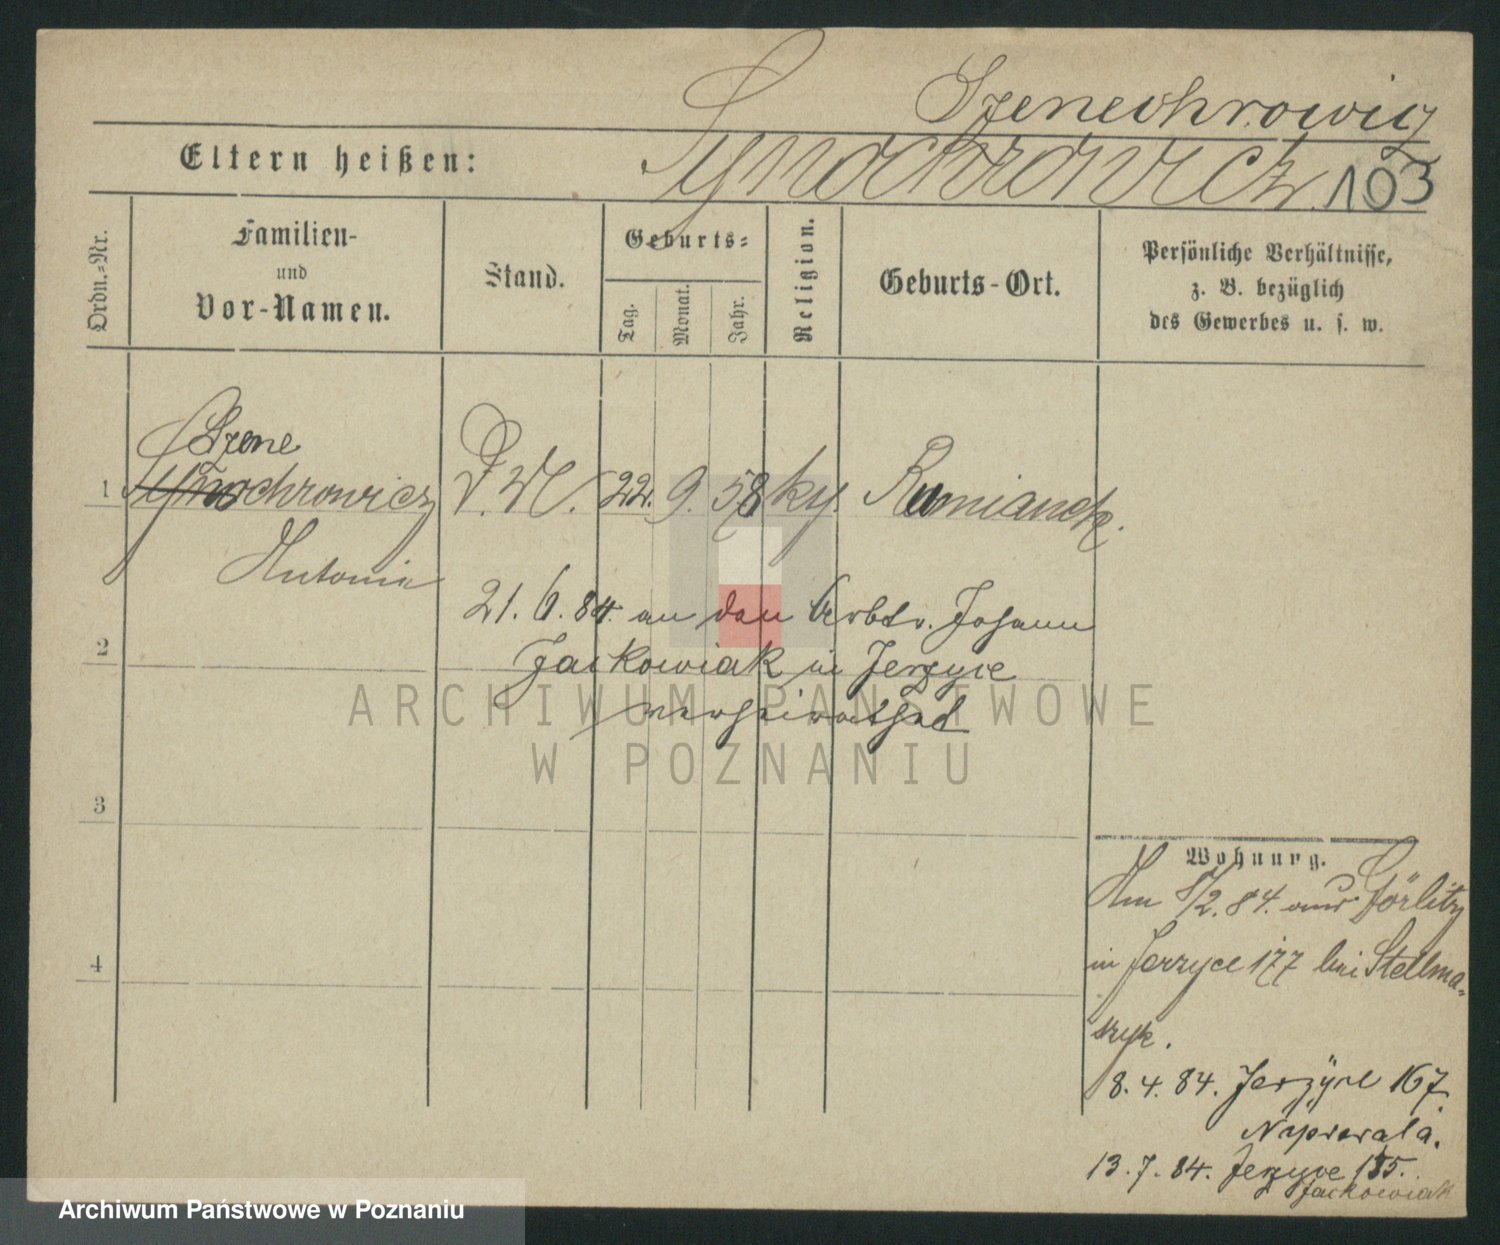 Szenechrowicz
Eltern heißen:
Synochrowicz 103
Ordn.-Nr.
Familien-
und
Vor-Namen.
Stand.
Geburts-
Tag.
Monat.
Jahr.
Religion.
Geburts-Ort.
Persönliche Verhältnisse,
z. B. bezüglich
des Gewerbes u. s. w.
Szene
1 Synochrowicz D. M. 22. 9. 58 ky. Rumianek.
Antonia
21. 6. 84. an den Arbtr. Johann
2 Jackowiak in Jerzyce
verheirathet
3
4
Wohnung.
Am 8/2. 84. aus Görlitz
in Jerzyce 177 bei Stellma-
szyk.
8. 4. 84. Jerzyce 167.
Napierala.
13. 7. 84. Jerzyce 155.
Jackowiak
ARCHIWUM PAŃSTWOWE
W POZNANIU
Archiwum Państwowe w Poznaniu